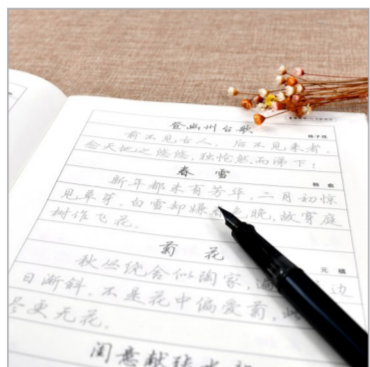 登幽州台歌
陈子昂
前不见古人,后不见来者,
念天地之悠悠,独怆然而涕下!
春雪
韩愈
新年都未有芳华,二月初惊
见草芽。白雪却嫌春色晚,故穿庭
树作飞花。
菊花
元稹
秋丛绕舍似陶家,遍 边
日渐斜。不是花中偏爱菊,此
尽更无花。
闺意献张水部